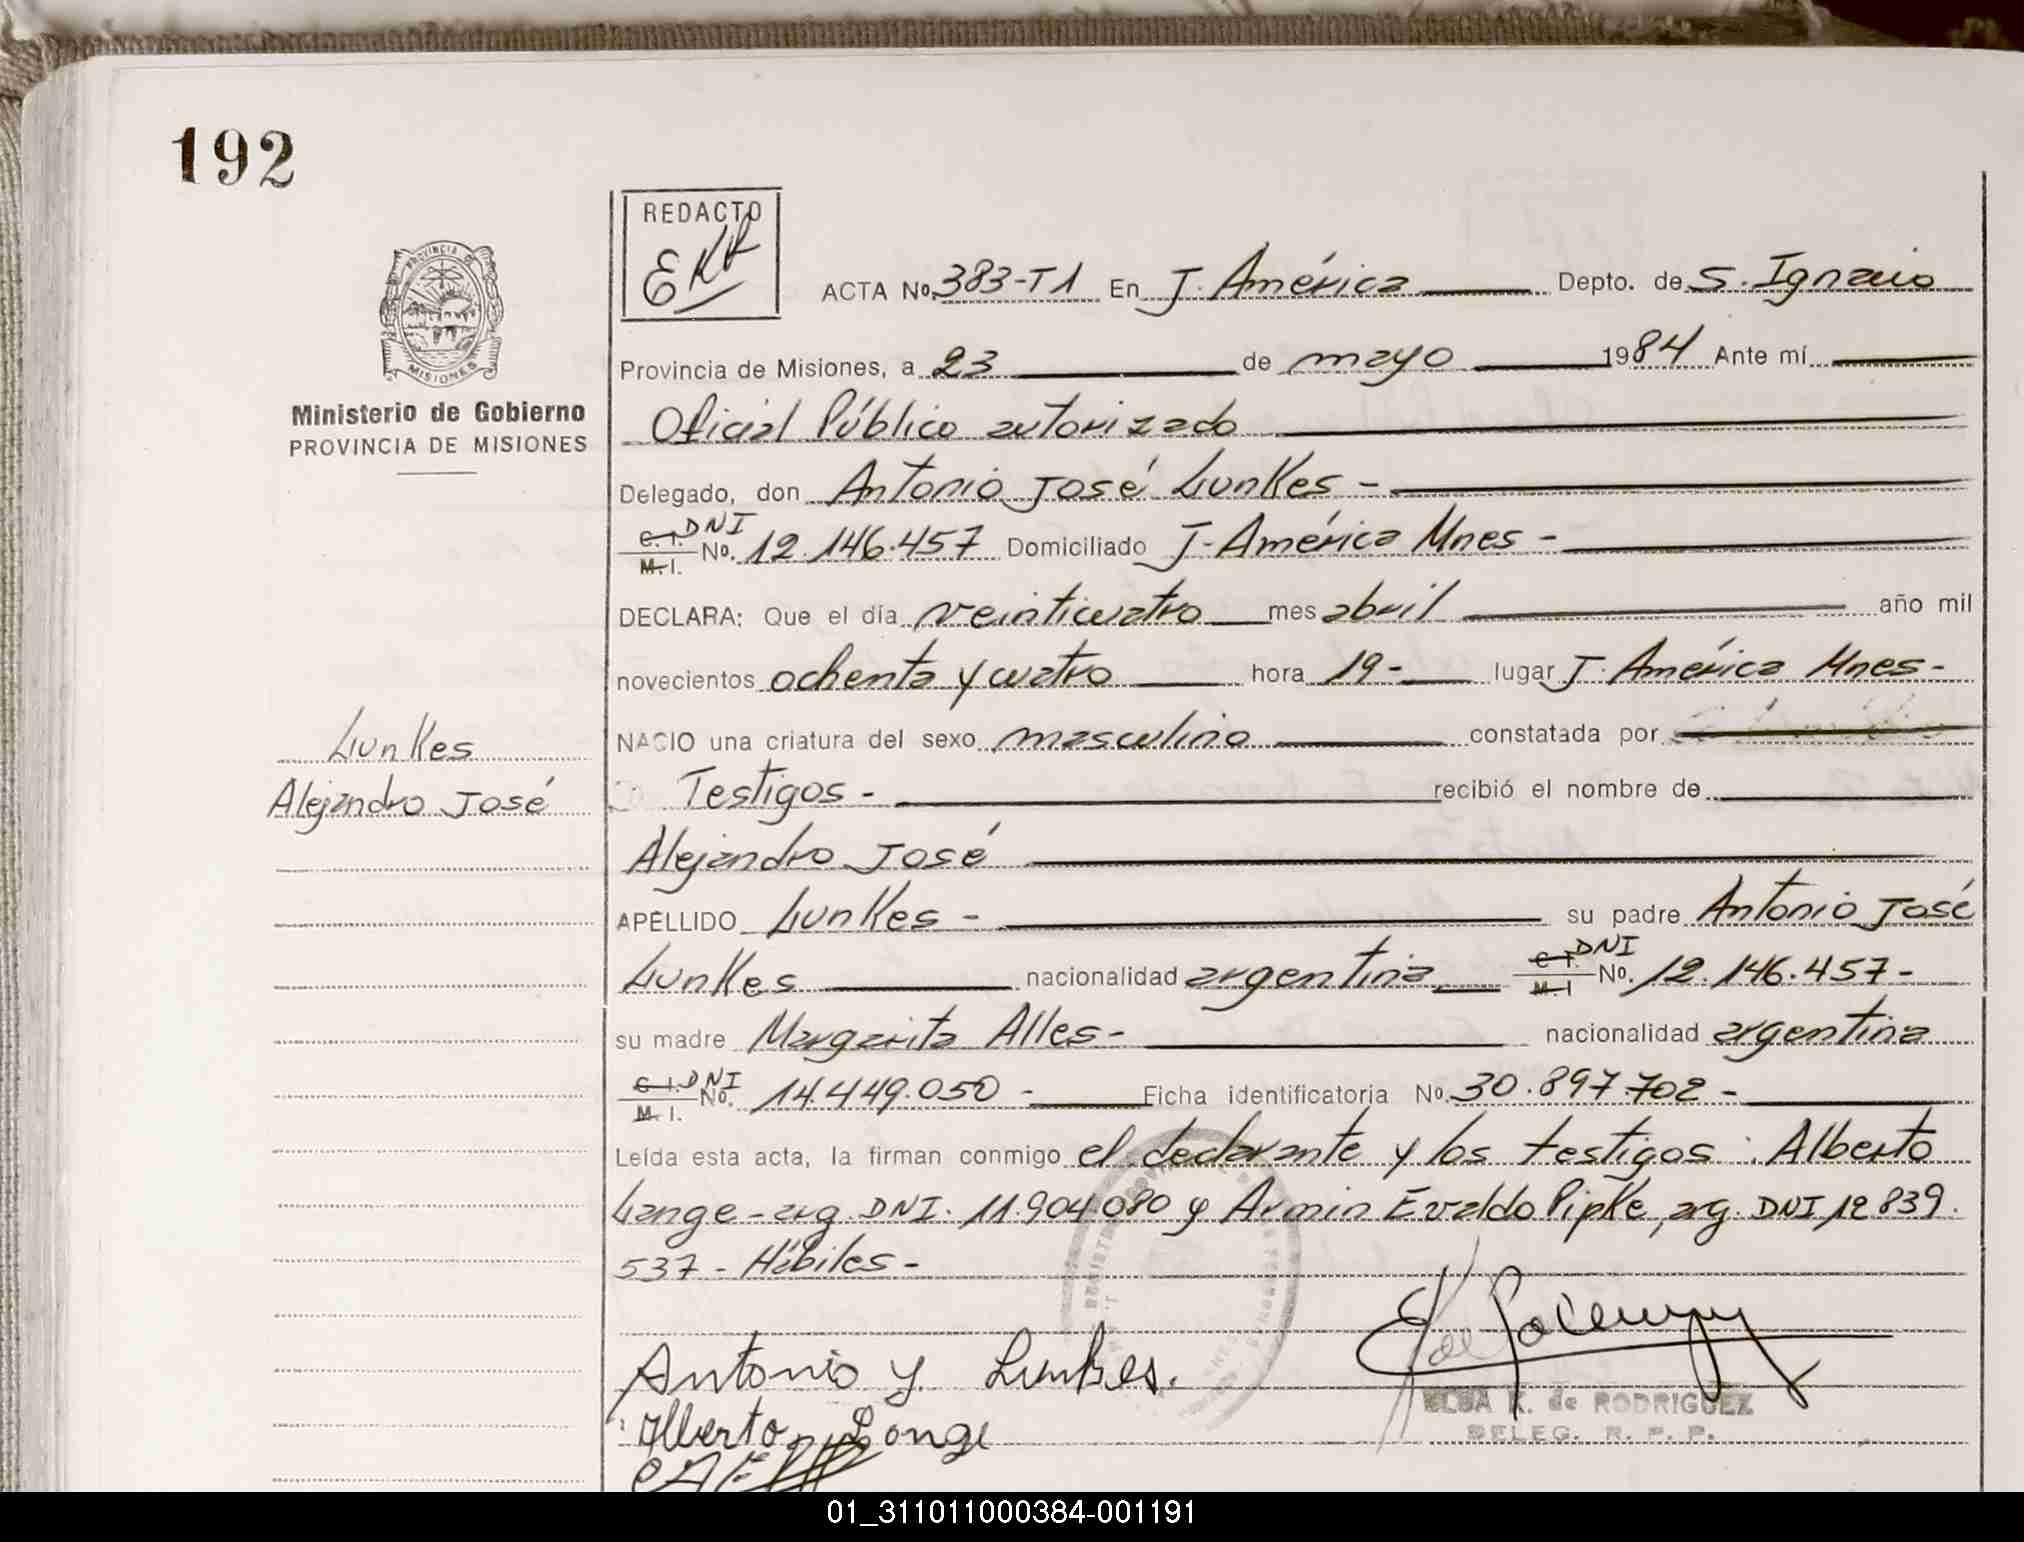 192
REDACTO
EKR
PROVINCIA DE
MISIONES
ACTA No. 383-T1 En J. América Depto. de S. Ignacio
Provincia de Misiones, a 23 de mayo 1984 Ante mí
Ministerio de Gobierno
PROVINCIA DE MISIONES
Oficial Público autorizado
Delegado, don Antonio José Lunkes -
C. I. DNI
M. I. No. 12.146.457 Domiciliado J. América Mnes -
DECLARA: Que el día veinticuatro mes abril año mil
novecientos ochenta y cuatro hora 19 - lugar J. América Mnes -
Lunkes
Alejandro José
NACIO una criatura del sexo masculino constatada por
Testigos - recibió el nombre de
Alejandro José
APELLIDO Lunkes - su padre Antonio José
Lunkes nacionalidad argentina C. I. DNI M. I. No. 12.146.457 -
su madre Margarita Alles - nacionalidad argentina
C. I. DNI
M. I. No. 14.449.050 - Ficha identificatoria No. 30.897.702 -
Leída esta acta, la firman conmigo el declarante y los testigos: Alberto
Lange - arg. DNI. 11.904.080 y Armin Evaldo Pipke, arg. DNI 12.839.
537 - Hábiles -
Antonio y Lunkes.
Alberto Lange
ELBA K. de RODRIGUEZ
DELEG. R. P. P.
01_311011000384-001191